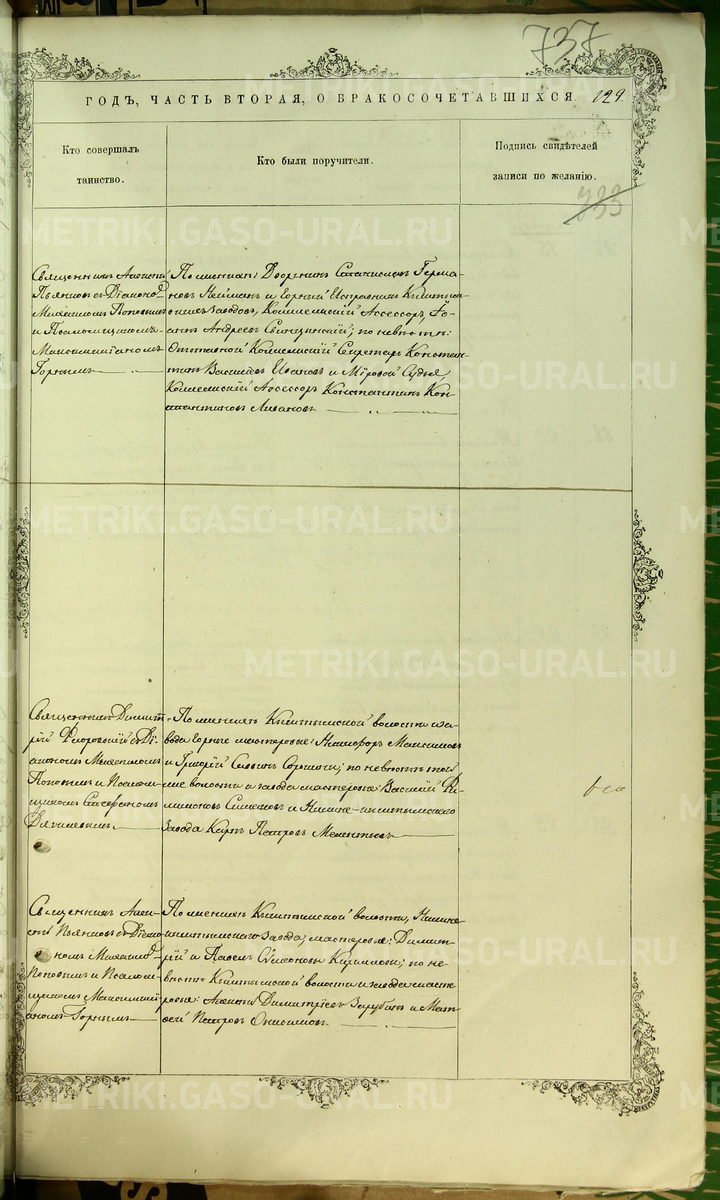 737
ГОДЪ, ЧАСТЬ ВТОРАЯ, О БРАКОСОЧЕТАВШИХСЯ. 129.
Кто совершалъ
таинство.
Кто были поручители.
Подпись свидѣтелей
записи по желанію.
733
Священникъ Алексѣй
Пьянковъ съ Діакон.
Михаиломъ Поповымъ
и Псаломщикомъ
Максимиліаномъ
Горнымъ
По женихѣ: Дворянинъ Станиславъ Герма-
новъ Нейманъ и Горный Исправникъ Кыштым-
скихъ заводовъ, Коллежскій Ассессоръ, Іо-
аннъ Андреевъ Свенцицкій; по невѣстѣ:
Отставной Коллежскій Секретарь Констан-
тинъ Васильевъ Ивановъ и Мировой Судья
Коллежскій Ассессоръ Константинъ Кон-
стантиновъ
Священникъ Димит-
рій Флоровскій съ Ді-
акономъ Михаиломъ
Поповымъ и Псалом-
щикомъ Стефаномъ
По женихѣ Кыштымской волости и за-
вода горные мастеровые: Никифоръ Максимовъ
и Григорій Саввинъ по невѣстѣ той
же волости и завода мастеровые: Василій Фи-
лимоновъ и Нижне-кыштымскаго
завода Карпъ Петровъ Мелентьевъ
Священникъ Алек-
сѣй Пьянковъ съ Діако-
номъ Михаиломъ
Поповымъ и Псалом-
щикомъ Максимилі-
аномъ Горнымъ
По женихѣ Кыштымской волости, Нижне-
кыштымскаго завода, мастеровые: Димит-
рій и Павелъ Симеоновы Кирилловы; по не-
вѣстѣ Кыштымской волости и завода масте-
ровые: Алексѣй Димитріевъ Зарубинъ и Мат-
вей Петровъ Онисимовъ
METRIKI.GASO-URAL.RU